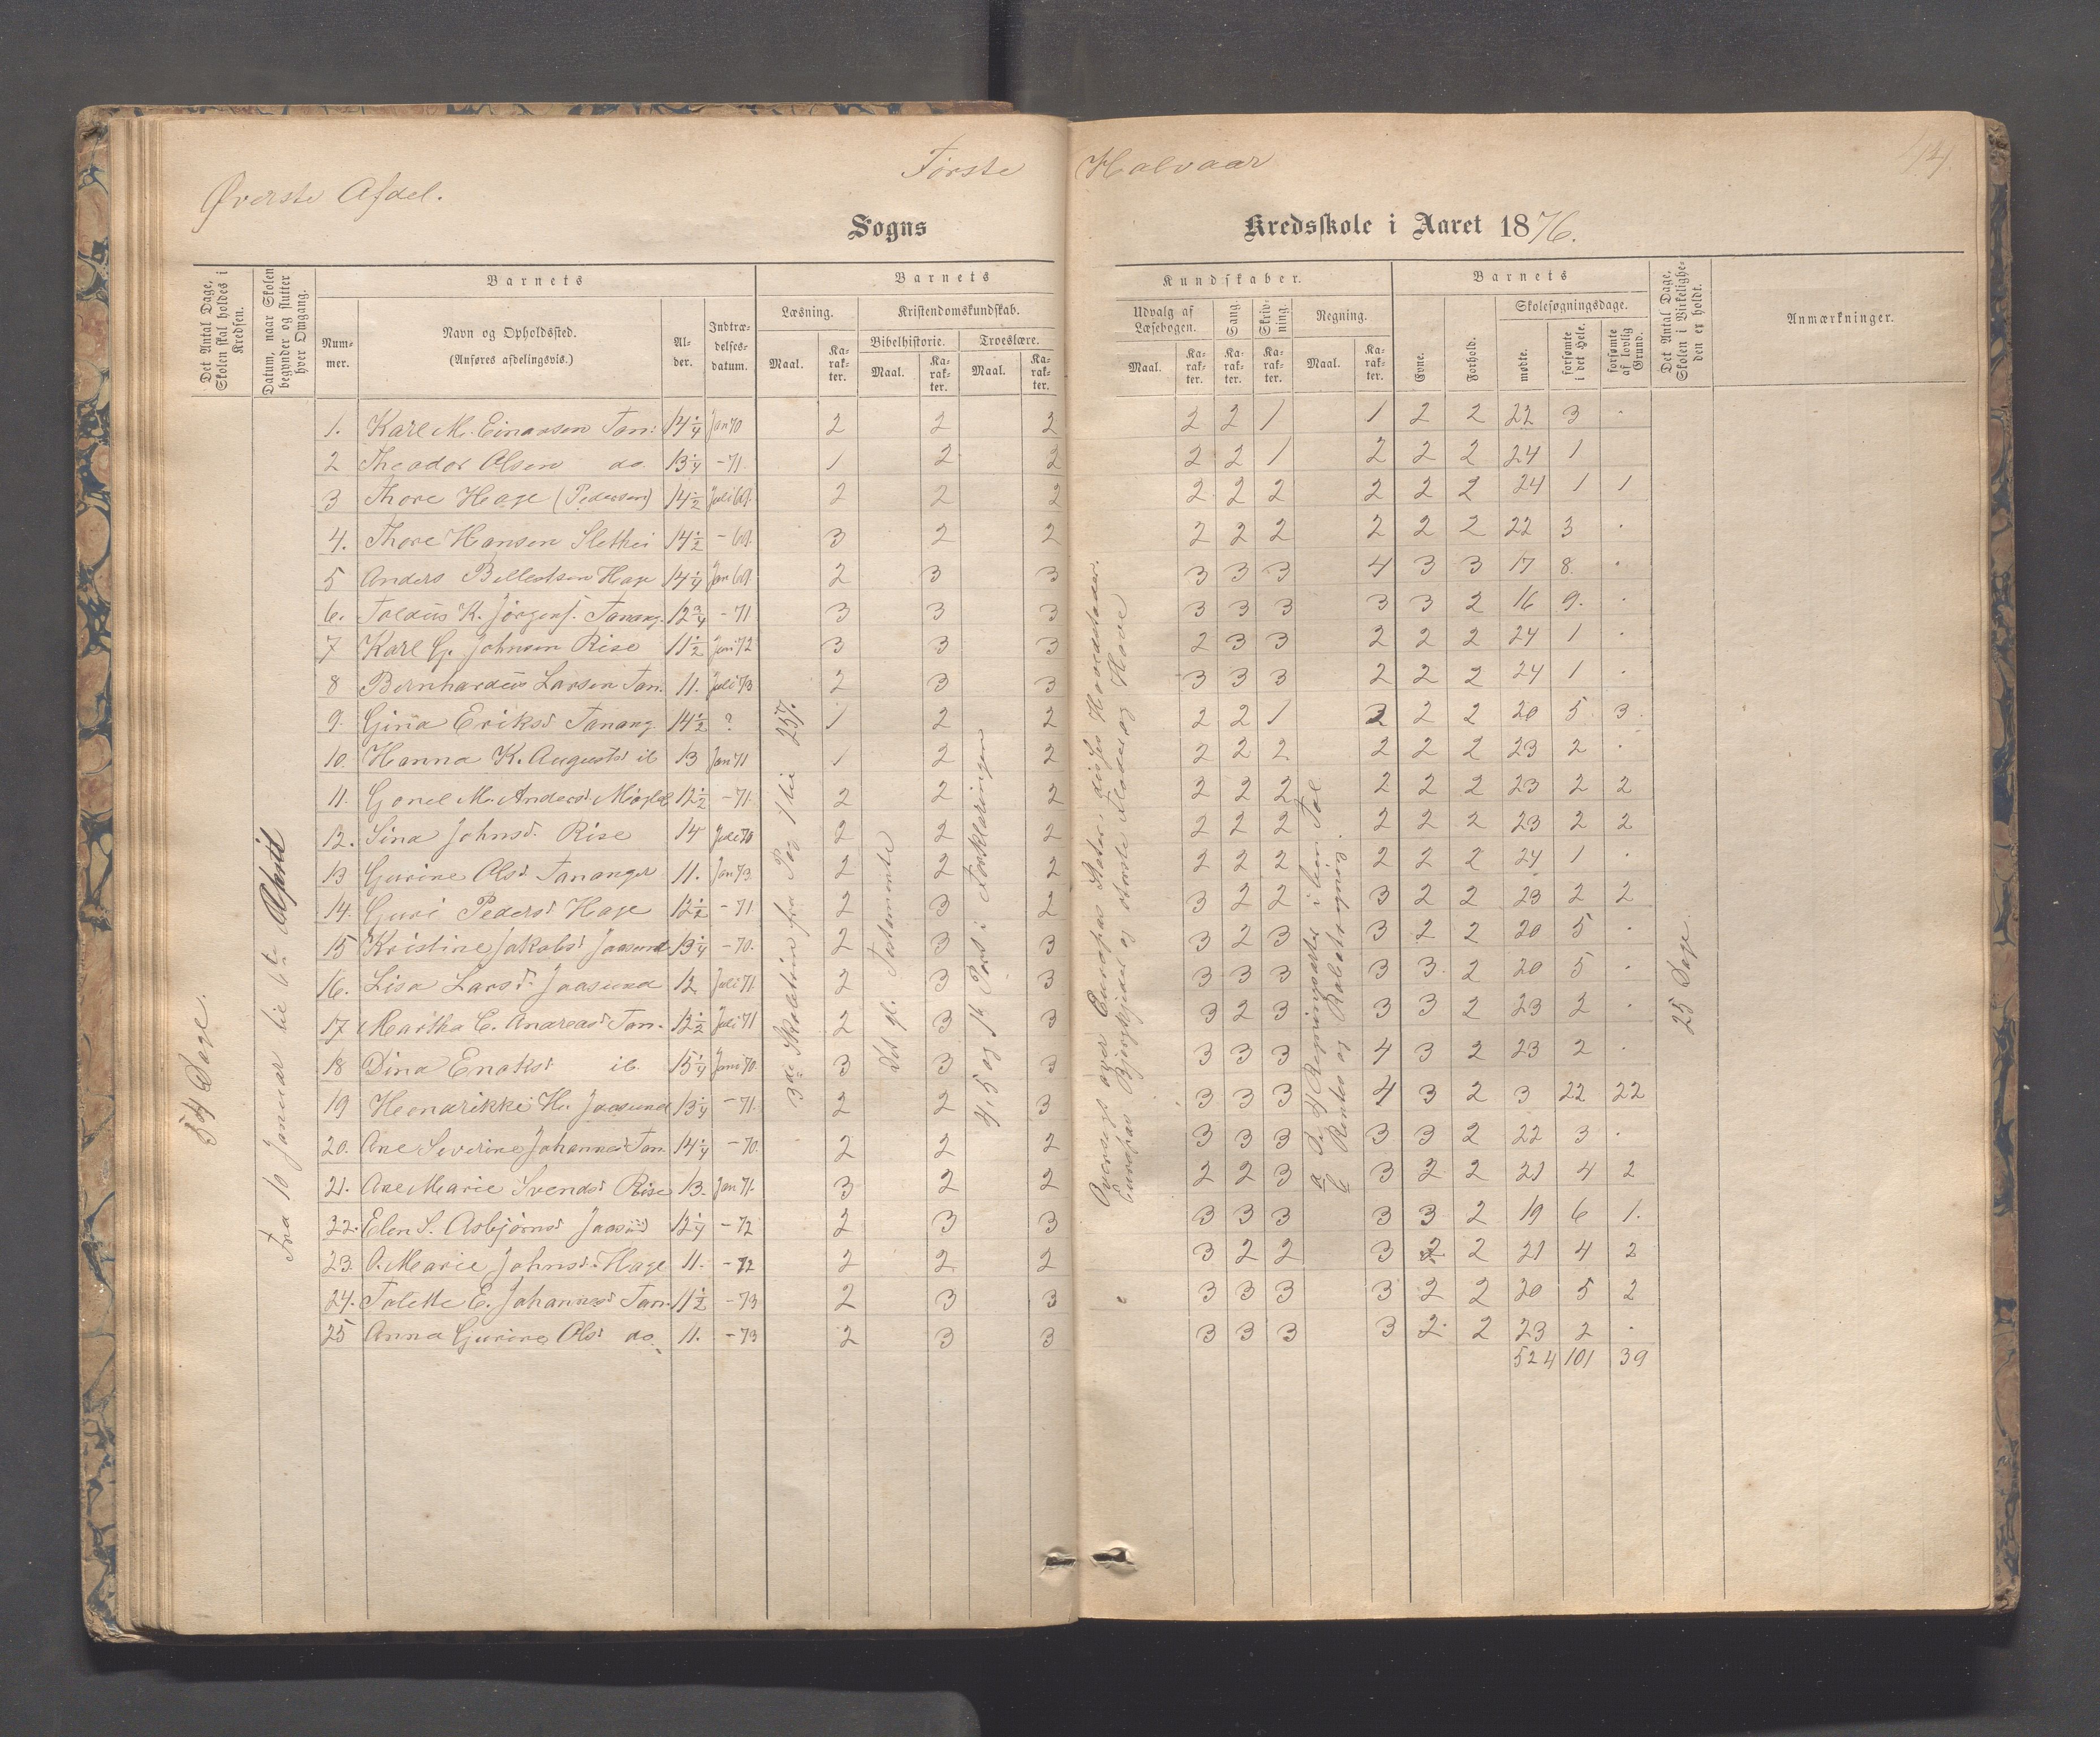 Første Halvaar
14
Øverste Afdel.
Sogns Kredsskole i Aaret 1876.
Det Antal Dage, Skolen skal holdes i Kredsen.
Datum, naar Skolen begynder og slutter hver Omgang.
Barnets
Num-mer.
Navn og Opholdssted.
(Anføres afdelingsvis.)
Al-der.
Indtræ-delses-datum.
Barnets Kundskaber.
Læsning.
Maal.
Ka-rak-ter.
Kristendomskundskab.
Bibelhistorie.
Maal.
Ka-rak-ter.
Troeslære.
Maal.
Ka-rak-ter.
Udvalg af Læsebogen.
Maal.
Ka-rak-ter.
Sang.
Ka-rak-ter.
Skriv-ning.
Ka-rak-ter.
Regning.
Maal.
Ka-rak-ter.
Barnets
Evne.
Forhold.
Skolesøgningsdage.
mødte.
forsømte i det Hele.
forsømte af lovlig Grund.
Det Antal Dage, Skolen i Virkelighe-den er holdt.
Anmærkninger.
54 Dage.
Fra 10 Januar til 6te April
3die Skoletrin fra Pag 1 til 257.
Det gl. Testamente
4, 5 og 1ste Part i Forklaringen
Oversigt over Europas Stater, disses Hovedstæder.
Europas Bjergkjeder og største Floder og Have
a De 4 Regningsarter i hven Tal
b Rentes og Rabatregning.
25 Dage
1. Karl M. Einarsen Tan: 14 1/4 Jan 70 2 2 2 2 2 1 1 2 2 22 3 .
2 Theodor Olsen do. 13 1/4 -71 1 2 2 2 2 1 2 2 2 24 1
3 Thore Hage (Pedersen) 14 1/2 Juli 69. 2 2 2 2 2 2 2 2 2 24 1 1
4. Thore Hansen Slethei 14 1/2 -69. 3 2 2 2 2 2 2 2 2 22 3 .
5 Anders Bellestsen Hage 14 1/4 Jan 69. 2 3 3 3 3 3 4 3 3 17 8 .
6. Taldius K. Jørgens. Tanang. 12 3/4 -71 3 3 3 3 3 3 3 3 2 16 9. .
7 Karl G. Johnsen Rise 11 1/2 Jan 72 3 3 3 2 3 3 2 2 2 24 1 .
8 Bernhardus Larsen Tan. 11. Juli 73 2 3 3 3 3 3 2 2 2 24 1 .
9. Gina Eriksd Tanang 14 1/2 ? 1 2 2 2 2 1 2 2 2 20 5 3
10. Hanna K. Augustsd ib 13 Jan 71 1 2 2 2 2 2 2 2 2 23 2 .
11. Gonel M. Andersd. Miøgled 12 1/2 -71. 2 2 2 2 2 2 2 2 2 23 2 2
12. Sina Johnsd. Rise 14 Juli 70 2 2 2 2 2 2 2 2 2 23 2 2
13 Gurine Olsd. Tananger 11. Jan 73. 2 2 2 2 2 2 2 2 2 24 1 .
14. Guri Pedersd Hage 12 1/2 -71 2 3 2 3 2 2 3 2 2 23 2 2
15 Kristine Jakobsd Jaasund 13 1/4 -70. 2 3 3 3 2 3 3 2 2 20 5 .
16. Lisa Larsd. Jaasund 12 Juli 71 2 3 3 3 3 3 3 3 2 20 5 .
17 Martha C. Andreasd Tan. 12 1/2 Juli 71 2 3 3 3 2 3 3 3 2 23 2 .
18 Dina Enoksd ib. 15 1/4 Jan 70. 3 3 3 3 3 3 4 3 2 23 2 .
19 Hendrikke H. Jaasund 13 1/4 -71. 2 2 3 3 3 3 4 3 2 3 22 22
20. Ane Severine Johannesd Tan. 14 1/4 -70. 2 2 2 3 3 3 3 3 2 22 3 .
21. Ane Marie Svendsd Rise 13. Jan 71. 3 2 2 2 2 3 3 2 2 21 4 2
22. Elen S. Asbjørnsd Jaasund 12 1/4 -72 2 3 3 3 3 3 3 3 2 19 6 1.
23. A. Marie Johnsd. Hage 11. -72 2 2 2 3 2 2 3 2 2 21 4 2
24. Talette E. Johannesd Tan. 11 1/2 -73 2 3 3 3 3 3 3 2 2 20 5 2
25 Anna Gurine Olsd do. 11. -73 2 3 3 3 3 3 3 2 2 23 2 .
524 101 39